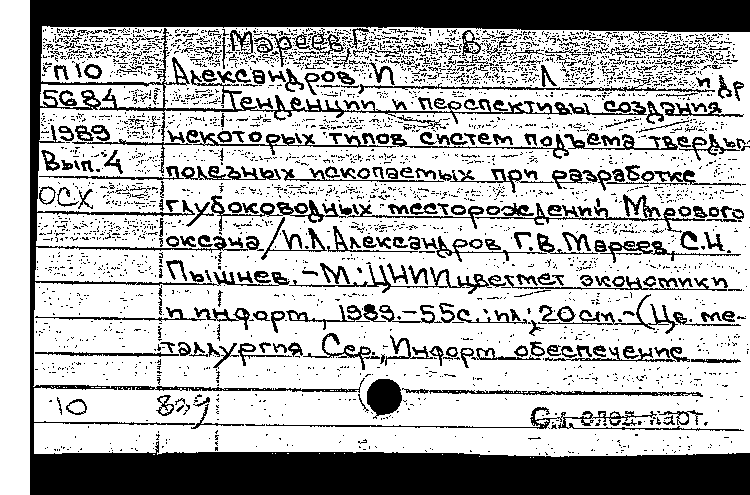 Мареев, Г В
П10 Александров, И Л и др
5684 Тенденции и перспективы создания
1989 некоторых типов систем подъема твердых
Вып. 4 полезных ископаемых при разработке
ОСХ глубоководных месторождений Мирового
океана / И.Л. Александров, Г.В. Мареев, С.И.
Пышнев. - М.: ЦНИИцветмет экономики
и информ., 1989. - 55с.: ил.; 20 см. - (Цв. ме-
таллургия. Сер., Информ обеспечение
10 839 См. след. карт.